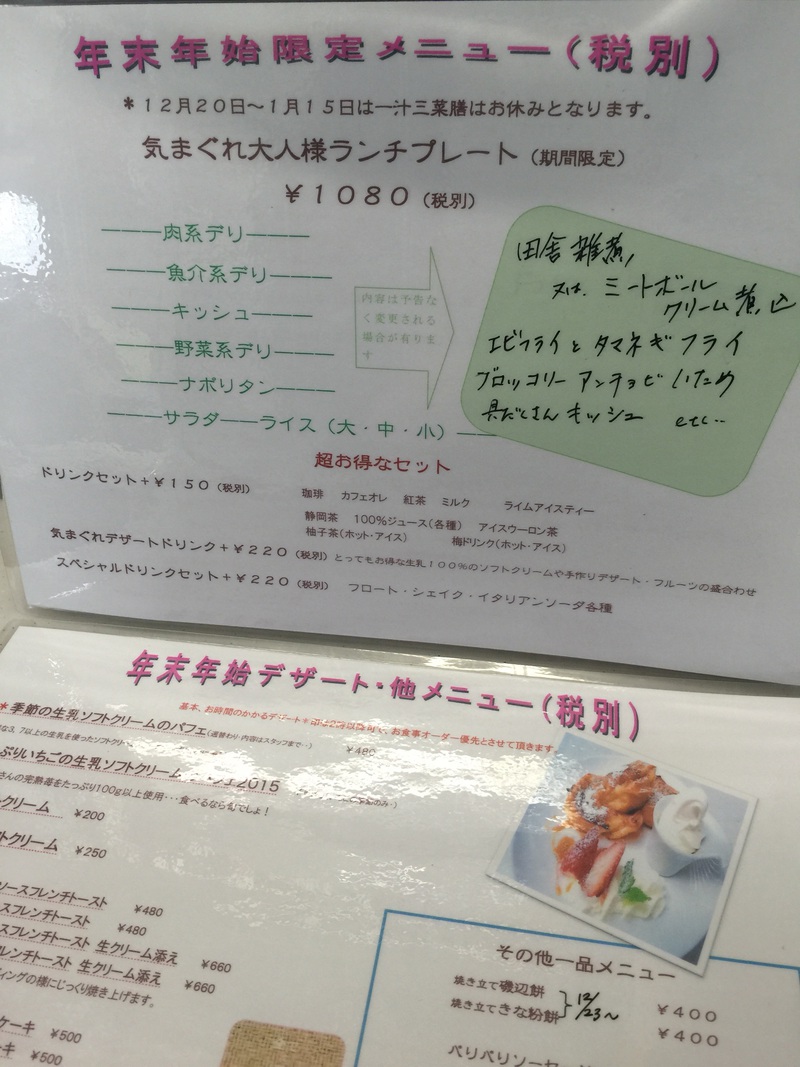 年末年始限定メニュー(税別)
*12月20日～1月15日は一汁三菜膳はお休みとなります。
気まぐれ大人様ランチプレート(期間限定)
¥1080(税別)
―――肉系デリ―――
―――魚介系デリ―――
―――キッシュ―――
―――野菜系デリ―――
―――ナポリタン―――
―――サラダ――ライス(大・中・小)――
内容は予告な
く変更される
場合が有りま
す
田舎雑煮
又は、ミートボール
クリーム煮込
エビフライとタマネギフライ
ブロッコリーアンチョビいため
具だくさんキッシュ etc…
超お得なセット
ドリンクセット+¥150(税別)
珈琲 カフェオレ 紅茶 ミルク ライムアイスティー
静岡茶 100%ジュース(各種) アイスウーロン茶
柚子茶(ホット・アイス) 梅ドリンク(ホット・アイス)
気まぐれデザートドリンク+¥220(税別)とってもお得な生乳100%のソフトクリームや手作りデザート・フルーツの盛合わせ
スペシャルドリンクセット+¥220(税別) フロート・シェイク・イタリアンソーダ各種
年末年始デザート・他メニュー(税別)
基本、お時間のかかるデザート
お食事オーダー優先とさせて頂きます
*季節の生乳ソフトクリームのパフェ(週替わり・内容はスタッフまで・・) ¥480
7以上の生乳を使ったソフトクリ
ぷりいちごの生乳ソフトクリーム 2015
さんの完熟苺をたっぷり100g以上使用・・・食べるなら旬でしょ!
クリーム ¥200
トクリーム ¥250
ソースフレンチトースト ¥480
スフレンチトースト ¥480
スフレンチトースト 生クリーム添え ¥660
レンチトースト 生クリーム添え ¥660
ィングの様にじっくり焼き上げます。
ケーキ ¥500
ーキ ¥500
その他一品メニュー
焼き立て磯辺餅 ¥400
焼き立てきな粉餅 ¥400
12/23～
パリパリソーセー